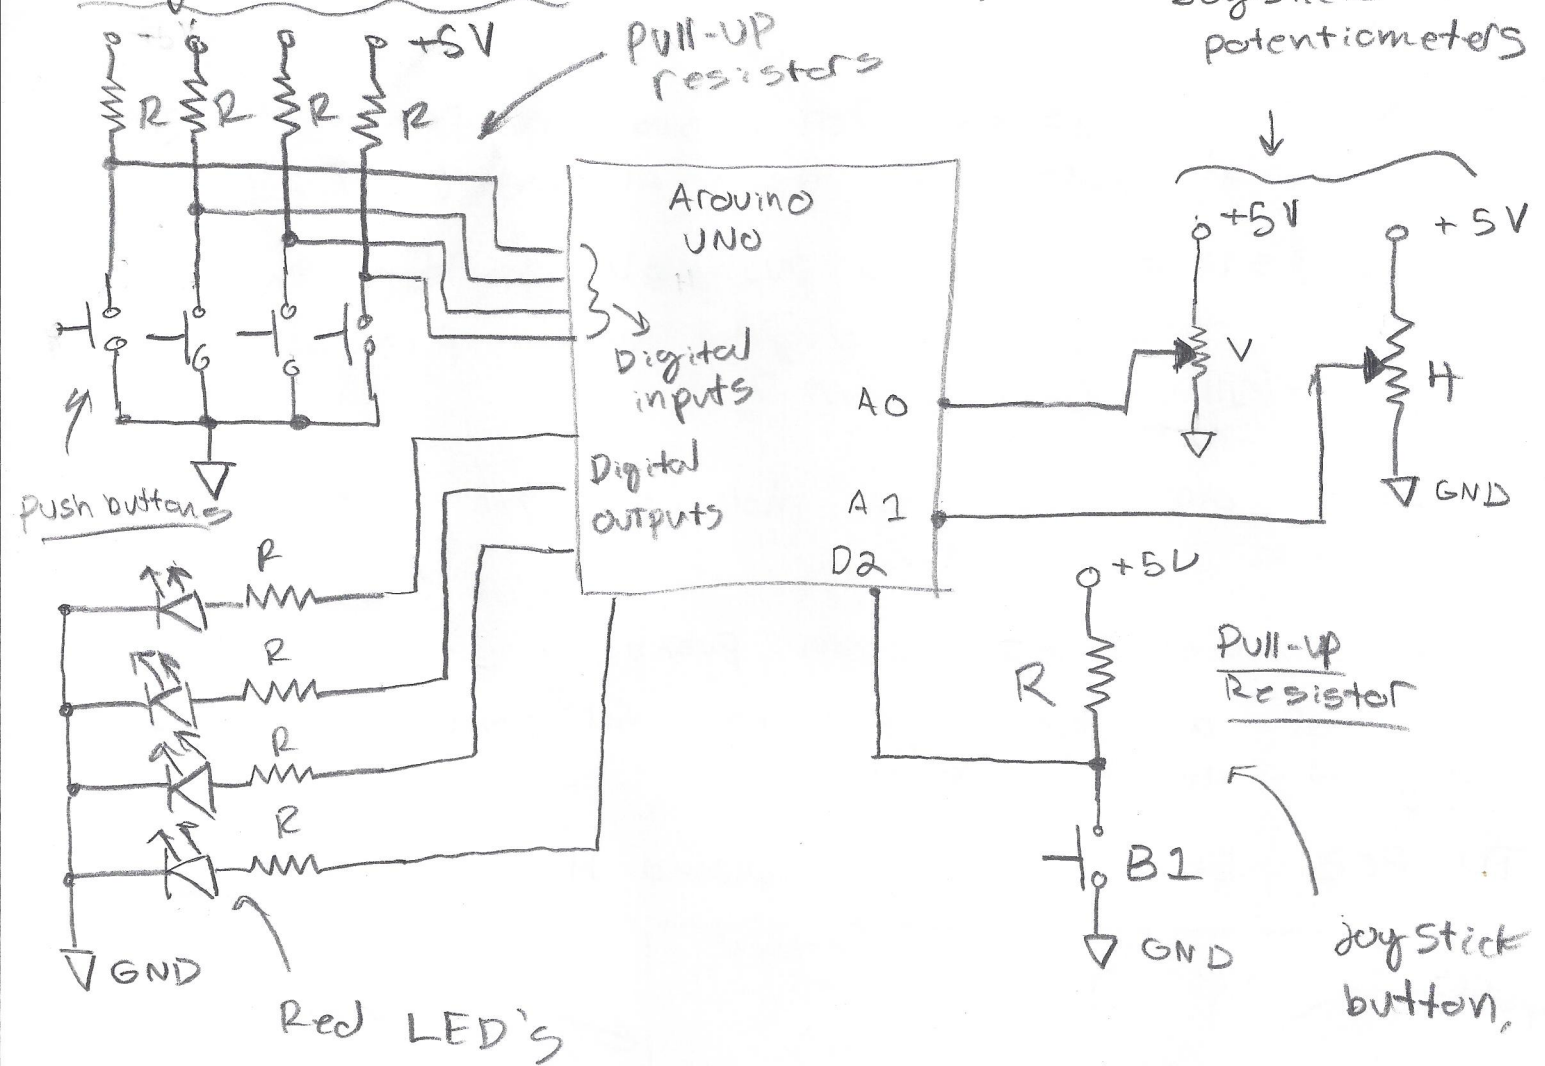 +5V
Pull-UP
resistors
R
R
R
R
potentiometers
Arduino
UNO
+5V
+5V
Digital
inputs
V
H
A0
Digital
outputs
A1
GND
D2
Push buttons
R
R
R
R
+5V
R
Pull-up
Resistor
B1
GND
GND
Red LED's
joystick
button,